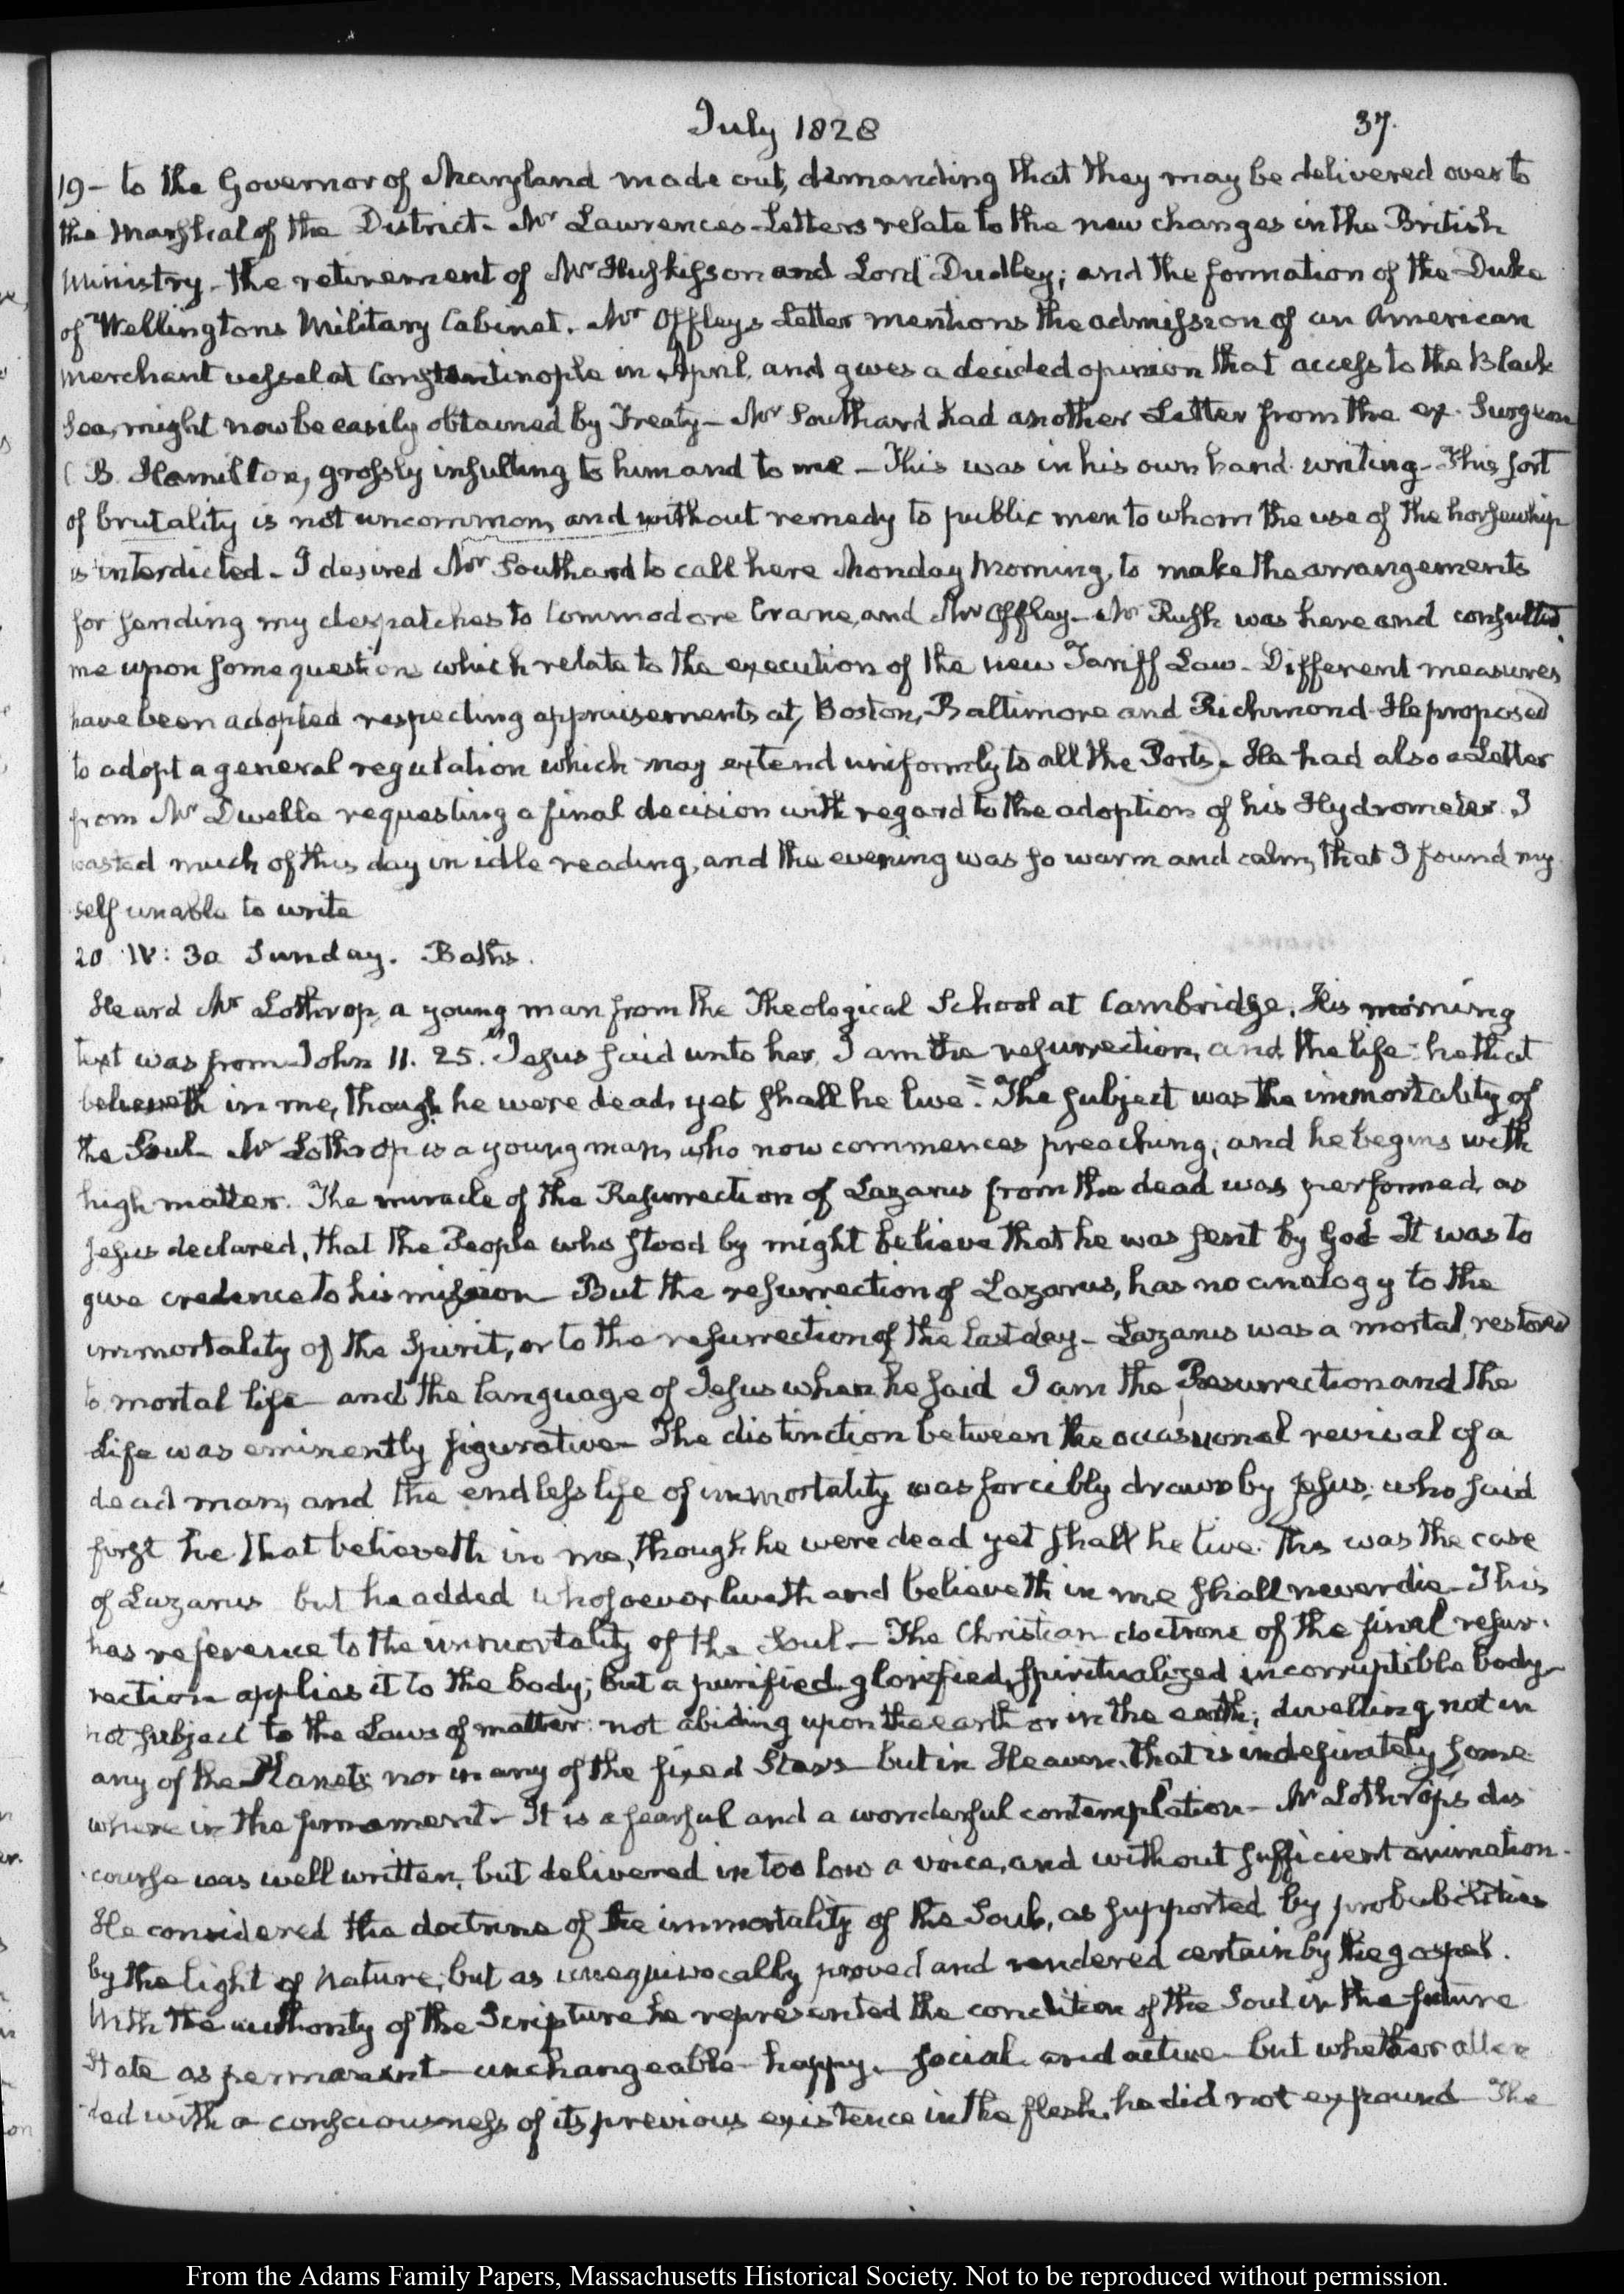 July 1828
37.
19- to the Governor of Maryland made out, demanding that they may be delivered over to
the Marshal of the District- Mr Lawrences Letters relate to the new changes in the British
Ministry- the retirement of Mr Huskisson and Lord Dudley; and the formation of the Duke
of Wellingtons Military Cabinet. Mr Offleys Letter mentions the admission of an American
Merchant vessel at Constantinople in April, and gives a decided opinion that access to the Black
Sea, might now be easily obtained by Treaty- Mr Southard had another Letter from the ex-Surgeon
C B. Hamilton, grossly insulting to him and to me- This was in his own hand-writing- This sort
of brutality is not uncommon, and without remedy to public men to whom the use of the horsewhip
is interdicted- I desired Mr Southard to call here Monday Morning, to make the arrangements
for sending my despatches to Commodore Crane, and Mr Offley- Mr Rush was here and consulted
me upon some questions which relate to the execution of the new Tariff Law- Different measures
have been adopted respecting appraisements at, Boston, Baltimore and Richmond- He proposed
to adopt a general regulation which may extend uniformly to all the Ports. He had also a Letter
from Mr Dwelle requesting a final decision with regard to the adoption of his Hydrometer. I
wasted much of this day in idle reading, and the evening was so warm and calm, that I found my
self unable to write
20 IV: 30 Sunday. Baths.
Heard Mr Lothrop, a young man from the Theological School at Cambridge. His morning
text was from John 11. 25. "Jesus said unto her, I am the resurrection, and the life: he that
believeth in me, though he were dead, yet shall he live." The subject was the immortality of
the Soul- Mr Lothrop is a young man, who now commences preaching; and he begins with
high matter. The miracle of the Resurrection of Lazarus from the dead was performed, as
Jesus declared, that the People who stood by might believe that he was sent by God- It was to
give credence to his mission- But the resurrection of Lazarus, has no analogy to the
immortality of the Spirit, or to the resurrection of the last day- Lazarus was a mortal, restored
to mortal life- and the language of Jesus when he said I am the Resurrection and the
Life was eminently figurative- The distinction between the occasional revival of a
dead man, and the endless life of immortality was forcibly drawn by Jesus, who said
first he that believeth in me, though he were dead yet shall he live. This was the case
of Lazarus but he added whosoever liveth and believeth in me shall never die- This
has reference to the immortality of the Soul- The Christian doctrine of the final resur-
rection applies it to the body; but a purified, glorified, spiritualized incorruptible body-
not subject to the Laws of matter: not abiding upon the earth or in the earth; dwelling not in
any of the Planets nor in any of the fixed Stars- but in Heaven. that is indefinitely some
where in the firmament- It is a fearful and a wonderful contemplation- Mr Lothrop's dis
course was well written, but delivered in too low a voice, and without sufficient animation-
He considered the doctrine of the immortality of the Soul, as supported by probabilities
by the light of Nature, but as unequivocally proved and rendered certain by the gospel.
With the authority of the Scripture he represented the condition of the Soul in the future
State as permanent- unchangeable- happy- social and active- but whether atten
ded with a consciousness of its previous existence in the flesh, he did not expound- The
From the Adams Family Papers, Massachusetts Historical Society. Not to be reproduced without permission.